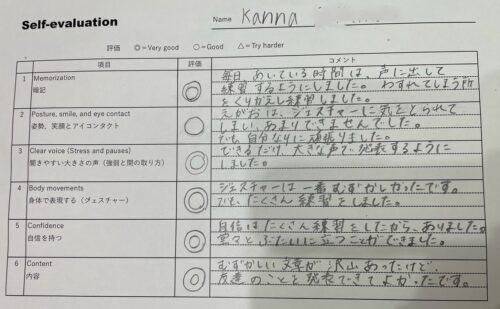 Self-evaluation
Name Kanna
評価 ◎=Very good ○=Good △=Try harder
項目 評価 コメント
1 Memorization
暗記
◎
毎日、あいている時間は、声に出して
練習するようにしました。わすれてしまう所
をくりかえし練習しました。
2 Posture, smile, and eye contact
姿勢、笑顔とアイコンタクト
○
えがおは、ジェスチャーに気をとられて
しまい、あまりできませんでした。
でも、自分なりに頑張りました。
3 Clear voice (Stress and pauses)
聞きやすい大きさの声(強弱と間の取り方)
◎
できるだけ、大きな声で発表するように
しました。
4 Body movements
身体で表現する(ジェスチャー)
◎
ジェスチャーは一番むずかしかったです。
でも、たくさん練習をしました。
5 Confidence
自信を持つ
◎
自信はたくさん練習をしたから、ありました。
堂々とぶたいに立つことができました。
6 Content
内容
◎
むずかしい文章が沢山あったけど、
友達のことを発表できてよかったです。